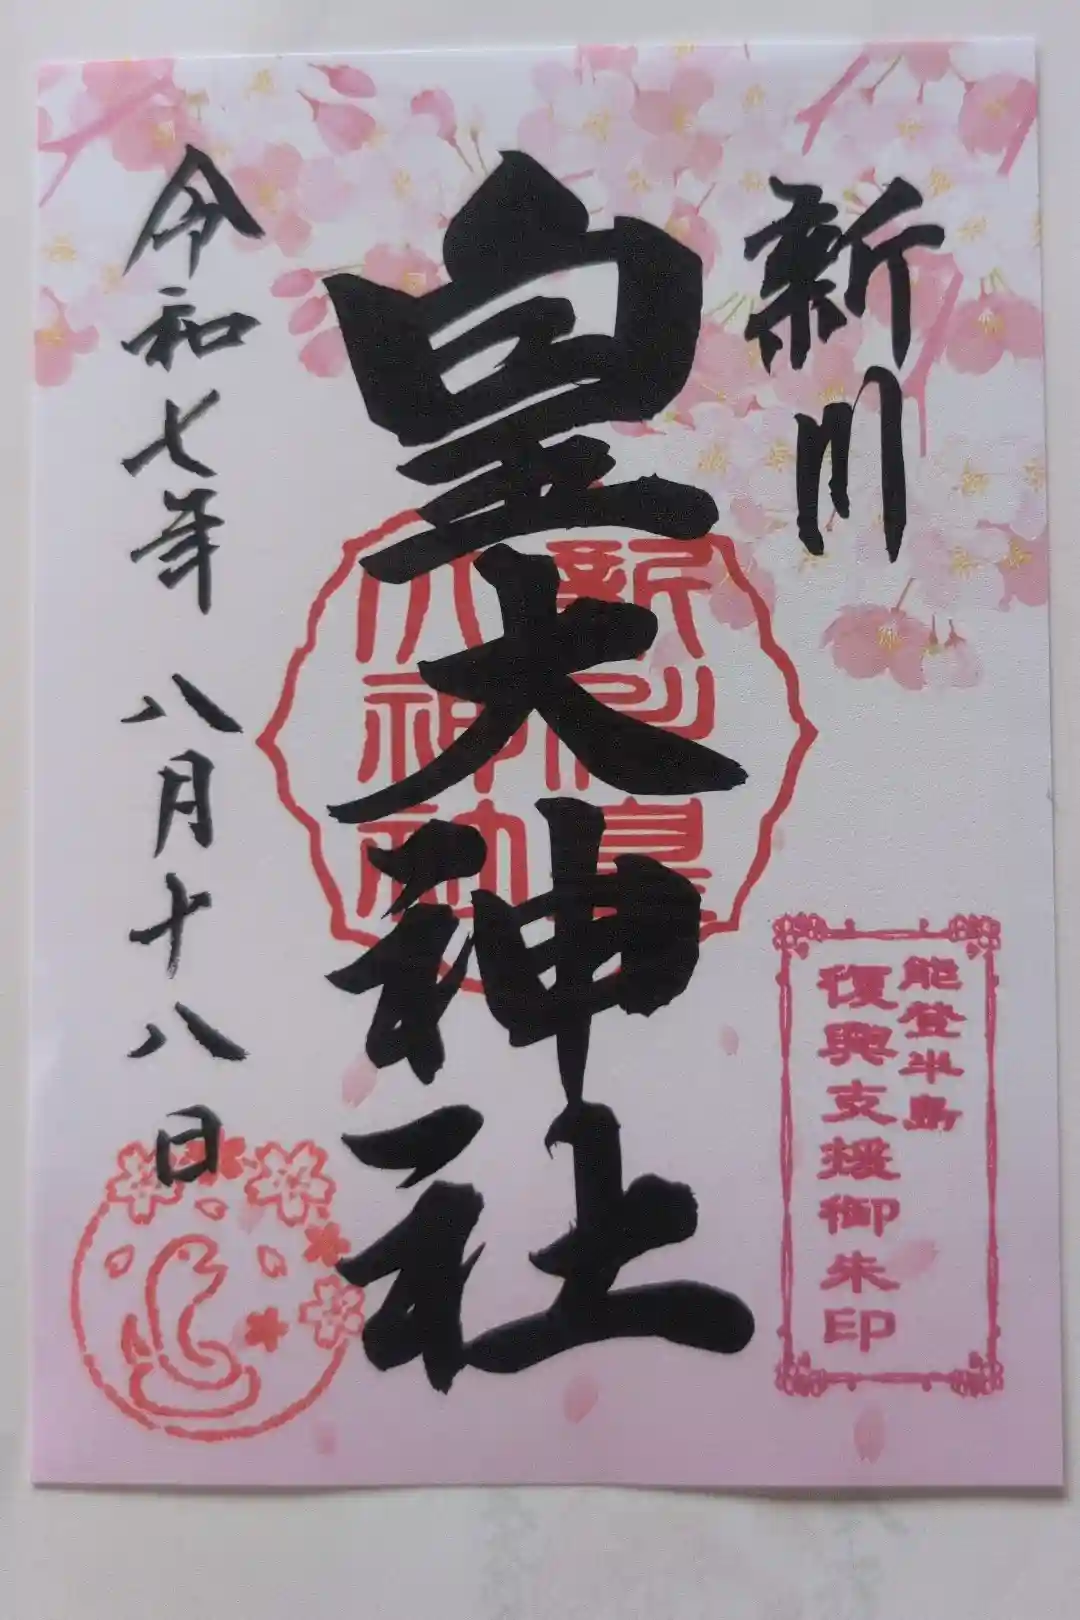 新川
皇大神社
新川皇
大神社
令和七年 八月十八日
能登半島
復興支援御朱印